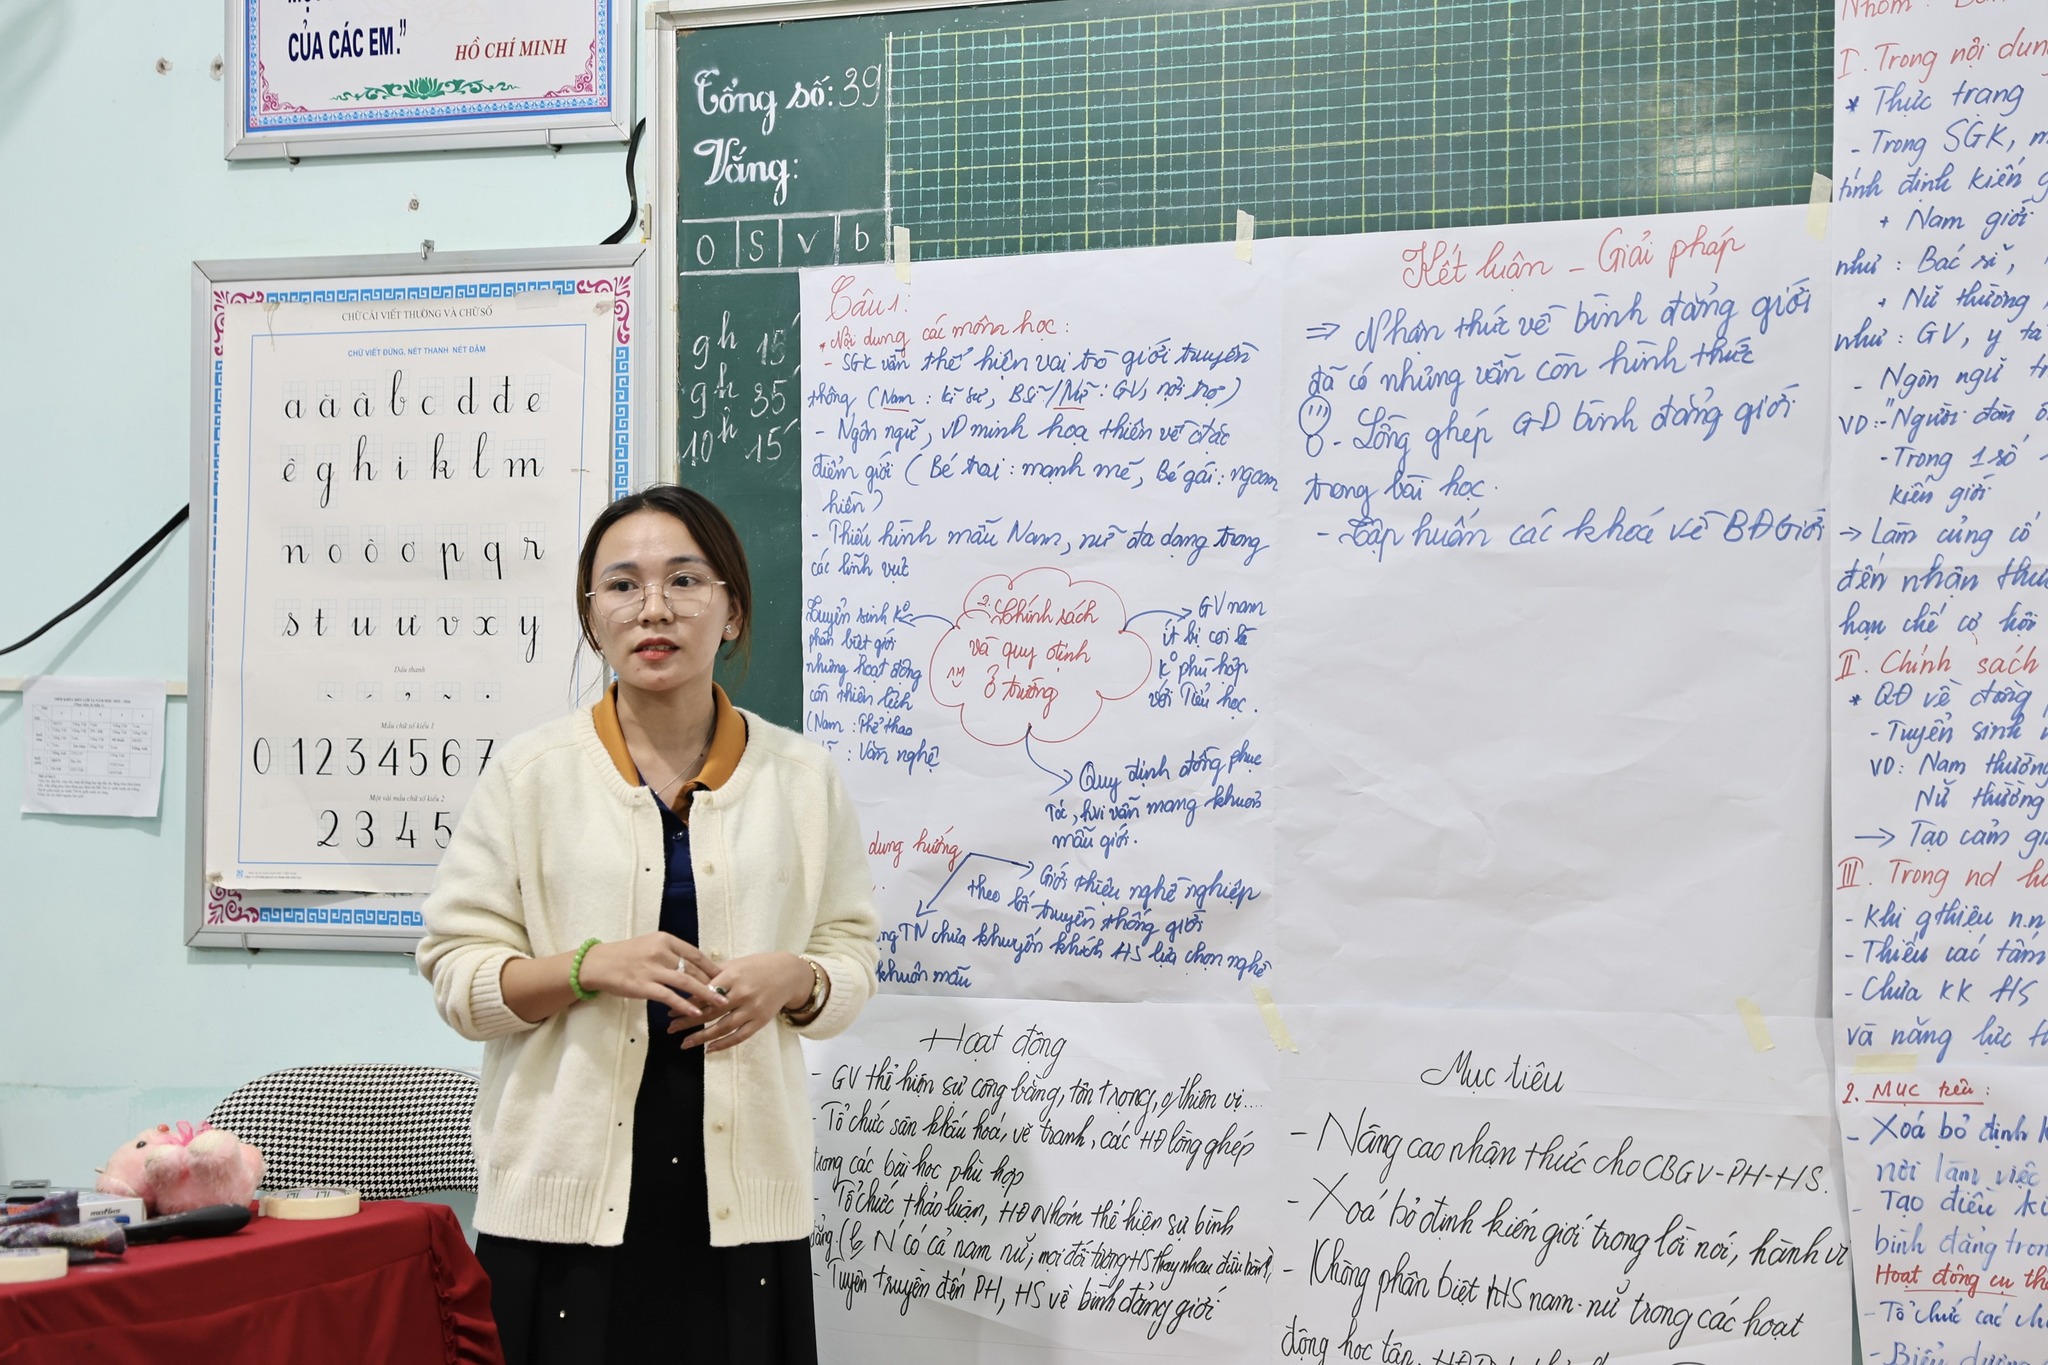 CỦA CÁC EM."
HỒ CHÍ MINH
CHỮ CÁI VIẾT THƯỜNG VÀ CHỮ SỐ
CHỮ VIẾT ĐỨNG, NÉT THANH NÉT ĐẬM
a ă â b c d đ e
ê g h i k l m
n o ô ơ p q r
s t u ư v x y
Dấu thanh
Mẫu chữ số kiểu 1
0 1 2 3 4 5 6 7
Một vài mẫu chữ số kiểu 2
2 3 4 5
Tổng số: 39
Vắng:
O S V b
9h 15'
9h 35'
10h 15'
Câu 1:
* Nội dung các môn học:
- SGK vẫn thể hiện vai trò giới truyền
thống (Nam: kĩ sư, BSĩ/Nữ: GV, nội trợ)
- Ngôn ngữ, VD minh họa thiên về đặc
điểm giới (Bé trai: mạnh mẽ, Bé gái: ngoan
hiền)
- Thiếu hình mẫu Nam, nữ đa dạng trong
các lĩnh vực
2. Chính sách
và quy định
ở trường
Tuyển sinh k°
phân biệt giới
nhưng hoạt động
còn thiên lệch
(Nam: Thể thao
: Văn nghệ
GV nam
ít bị coi là
k° phù hợp
với Tiểu học.
Quy định đồng phục
Tóc, hvi vẫn mang khuôn
mẫu giới.
dung hướng
Giới thiệu nghề nghiệp
theo lối truyền thống giới
TN chưa khuyến khích HS lựa chọn nghề
khuôn mẫu
Kết luận - Giải pháp
⇒ Nhận thức về bình đẳng giới
đã có nhưng vẫn còn hình thức
- Lồng ghép GD bình đẳng giới
trong bài học.
- Tập huấn các khoá về BĐ Giới
Hoạt động
- GV thể hiện sự công bằng, tôn trọng, thiên vị....
- Tổ chức sân khấu hoá, vẽ tranh, các HĐ lồng ghép
trong các bài học phù hợp
- Tổ chức thảo luận, HĐ Nhóm thể hiện sự bình
N có cả nam nữ; mọi đối tượng HS thay nhau điều
- Tuyên truyền đến PH, HS về bình đẳng giới
Mục tiêu
- Nâng cao nhận thức cho CBGV-PH-HS.
- Xoá bỏ định kiến giới trong lời nói, hành vi
- Không phân biệt HS nam-nữ trong các hoạt
động học tập,
I. Trong nội dung
* Thực trạng
- Trong SGK,
tính định kiến
+ Nam giới
như: Bác sĩ,
+ Nữ thường
như: GV, y tá
- Ngôn ngữ
VD:-"Người đàn
- Trong 1 số
kiến giới
→ Làm củng cố
đến nhận
hạn chế cơ hội
II. Chính sách
* QĐ về đồng
- Tuyển sinh
VD: Nam thường
Nữ thường
→ Tạo cảm
III. Trong nd
- Khi gthiệu n.n
- Thiếu các tấm
- Chưa KK HS
và năng lực
2. Mục tiêu:
- Xoá bỏ định
nơi làm việc
- Tạo điều
bình đẳng
Hoạt động cụ
- Tổ chức các
- Biểu dương